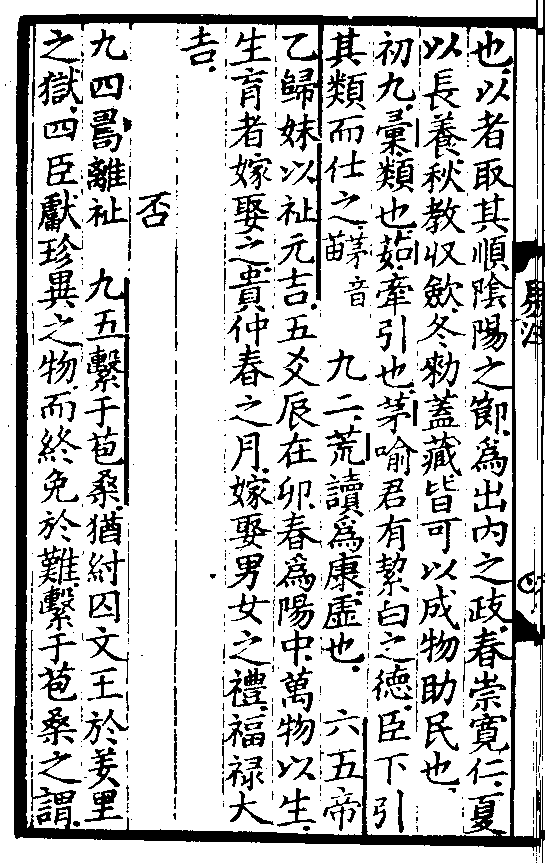 也以者取其順陰陽之節為出內之政春崇寬仁夏
以長養秋教収歛冬勑蓋藏皆可以成物助民也
初九彙類也茹牽引也茅喻君有絜白之德臣下引
其類而仕之茅音苗 九二荒讀為康虛也 六五帝
乙歸妹以祉元吉五爻辰在卯春為陽中萬物以生
生育者嫁娶之貴仲春之月嫁娶男女之禮福禄大
吉
否
九四𠷎離祉 九五繫于苞桑猶紂囚文王於姜里
之獄四臣獻珍異之物而終免於難繫于苞桑之謂